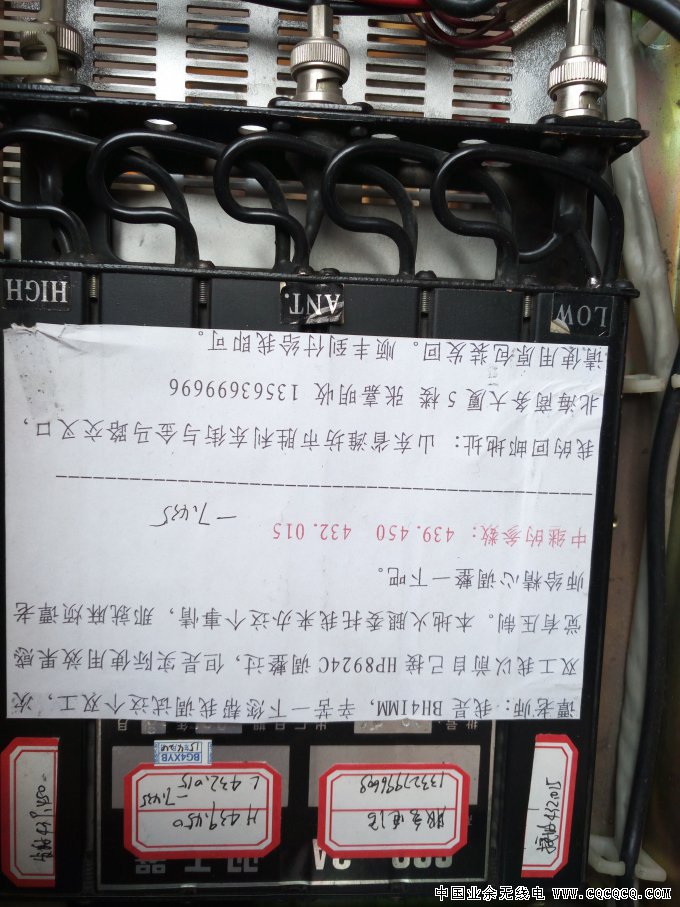 双工器
H 439.450
-7.435
L 432.015
BG4XYB
谭老师：我是 BH4IMM，辛苦一下您帮我调试个双工，次
双工我以前自己接 HP8924C 调整过，但是实际使用效果感
觉有压制。本地火腿委托我来办这个事情，那就麻烦谭老
师给精心调整一下吧。
中继的参数：439.450 432.015 -7.435
我的回邮地址：山东省潍坊市胜利东街与金马路交叉口，
北海商务大厦 5 楼 张嘉明收 13563699696
请使用原包装发回。顺丰到付给我即可。
LOW
ANT.
HIGH
中国业余无线电 www.cqcqcq.com